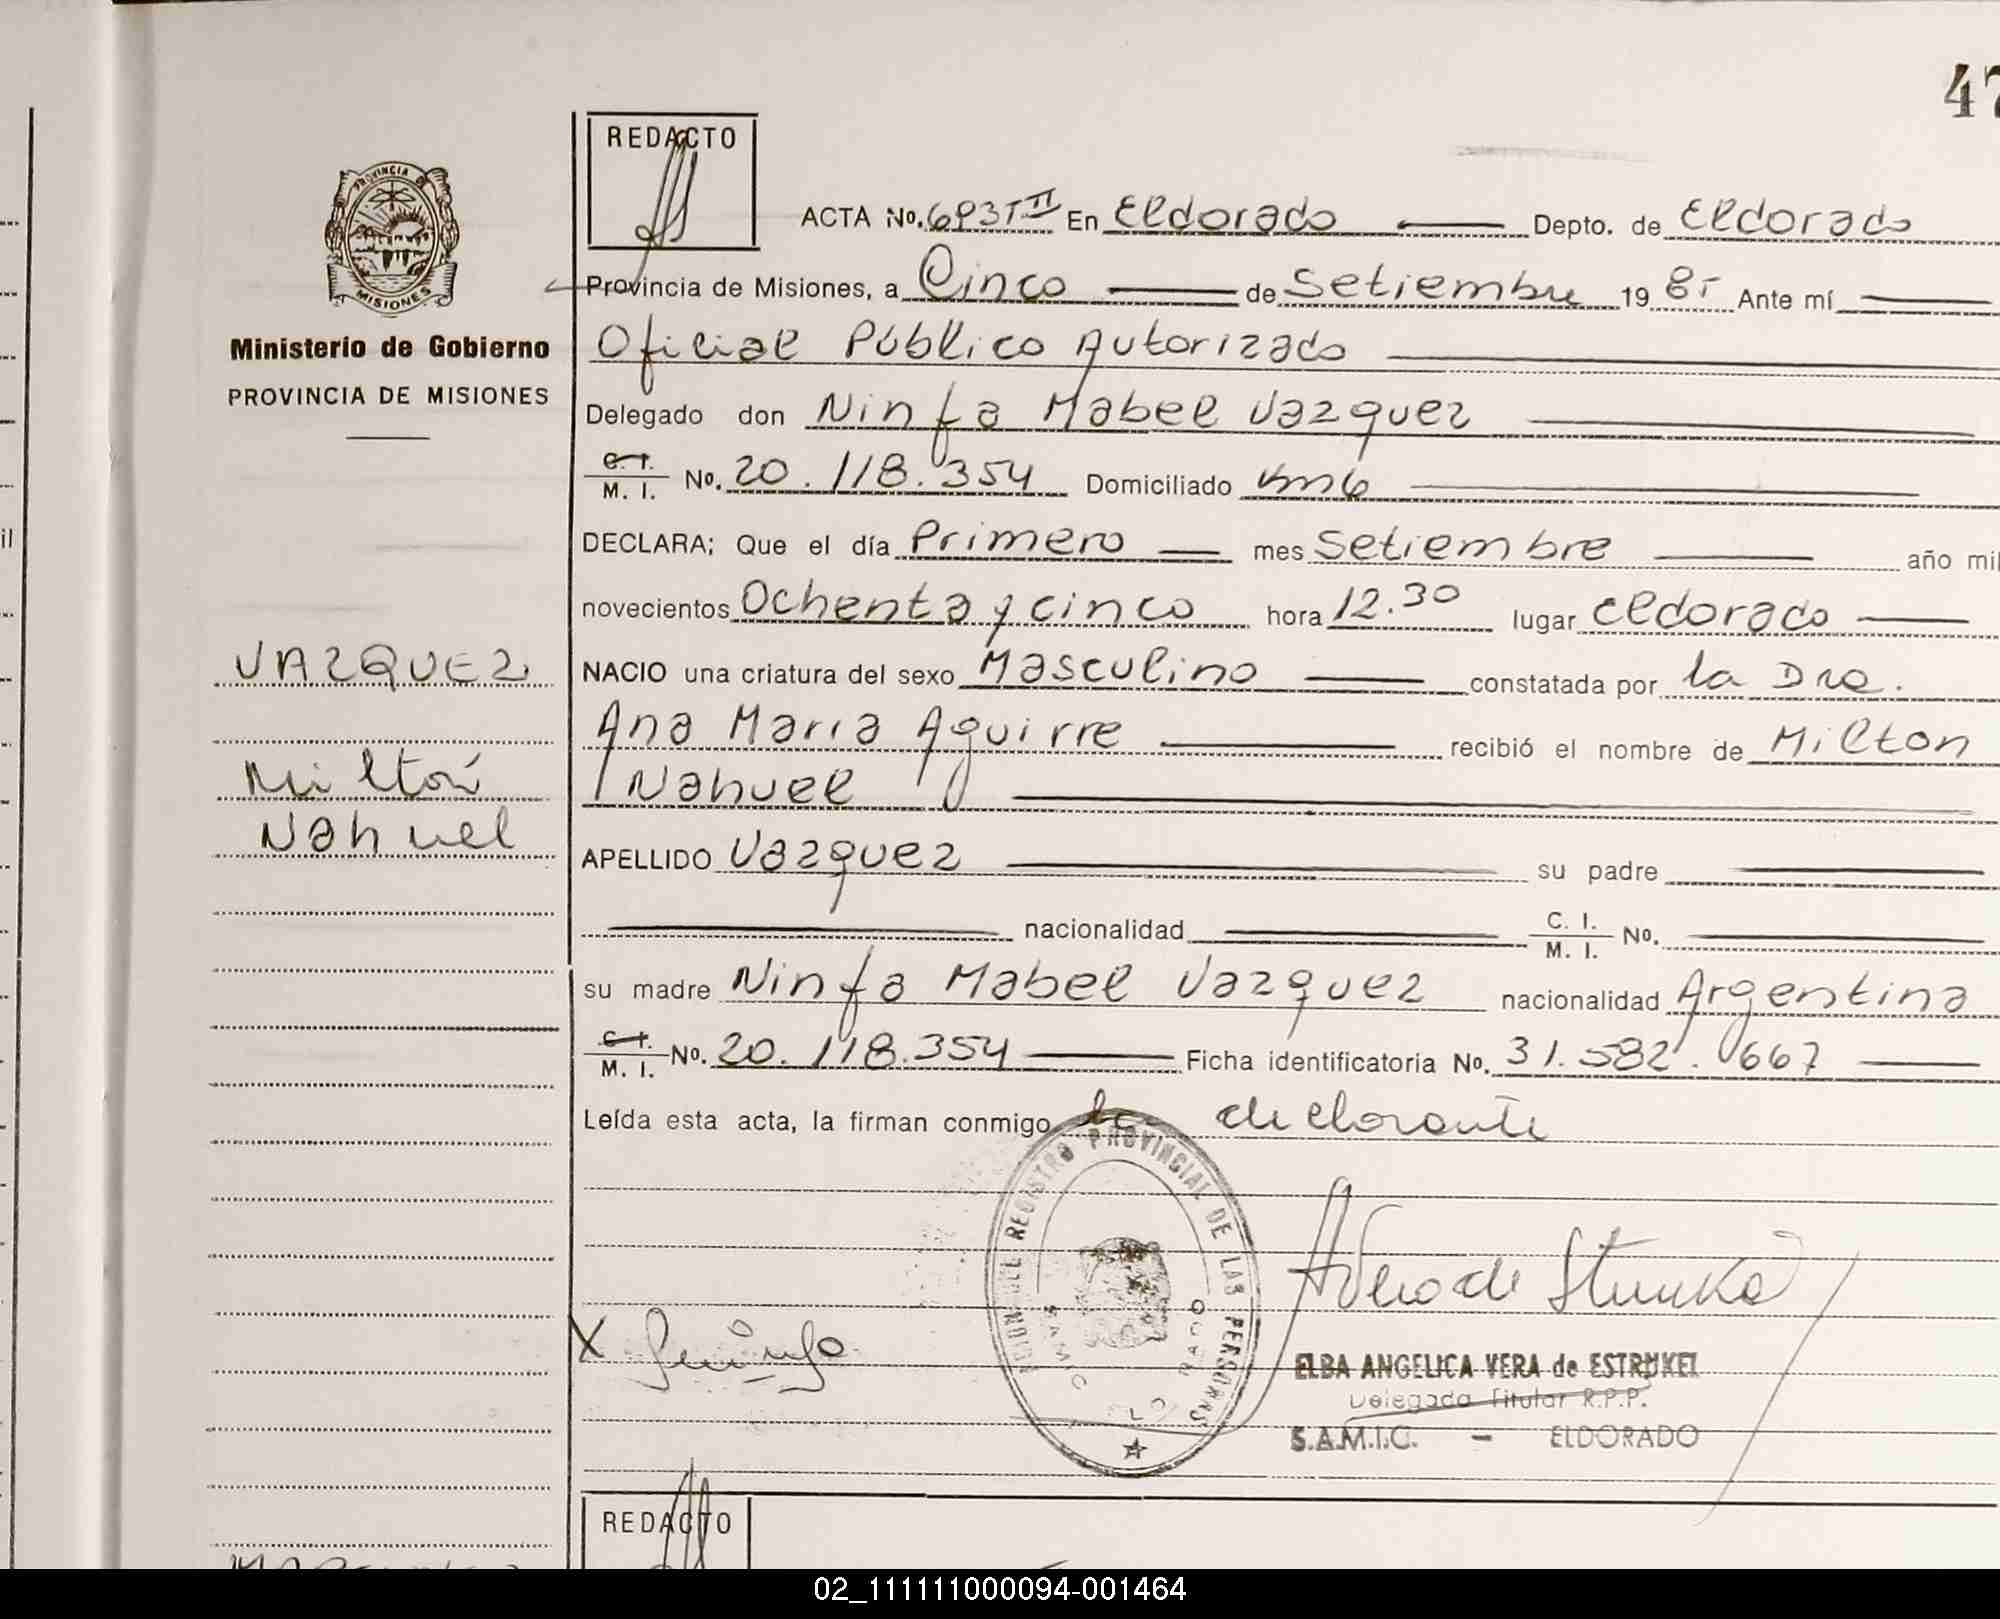 47
REDACTO
PROVINCIA DE
MISIONES
Ministerio de Gobierno
PROVINCIA DE MISIONES
ACTA No. 693 T II En Eldorado Depto. de Eldorado
Provincia de Misiones, a Cinco de Setiembre 19 85 Ante mí
Oficial Público Autorizado
Delegado don Ninfa Mabel Vazquez
C. I. M. I. No. 20.118.354 Domiciliado Km 6
DECLARA; Que el día Primero mes Setiembre año mil
novecientos Ochenta y cinco hora 12.30 lugar Eldorado
VAZQUEZ
NACIO una criatura del sexo Masculino constatada por la Dra.
Ana Maria Aguirre recibió el nombre de Milton
Milton
Nahuel
Nahuel
APELLIDO Vazquez su padre
nacionalidad C. I. M. I. No.
su madre Ninfa Mabel Vazquez nacionalidad Argentina
C. I. M. I. No. 20.118.354 Ficha identificatoria No. 31.582.667
Leída esta acta, la firman conmigo la declarante
REGISTRO PROVINCIAL DE LAS PERSONAS
SAMIC
ELDORADO
ELBA ANGELICA VERA de ESTRUKEL
Delegada Titular R.P.P.
S.A.M.I.C. - ELDORADO
REDACTO
il
02_111111000094-001464